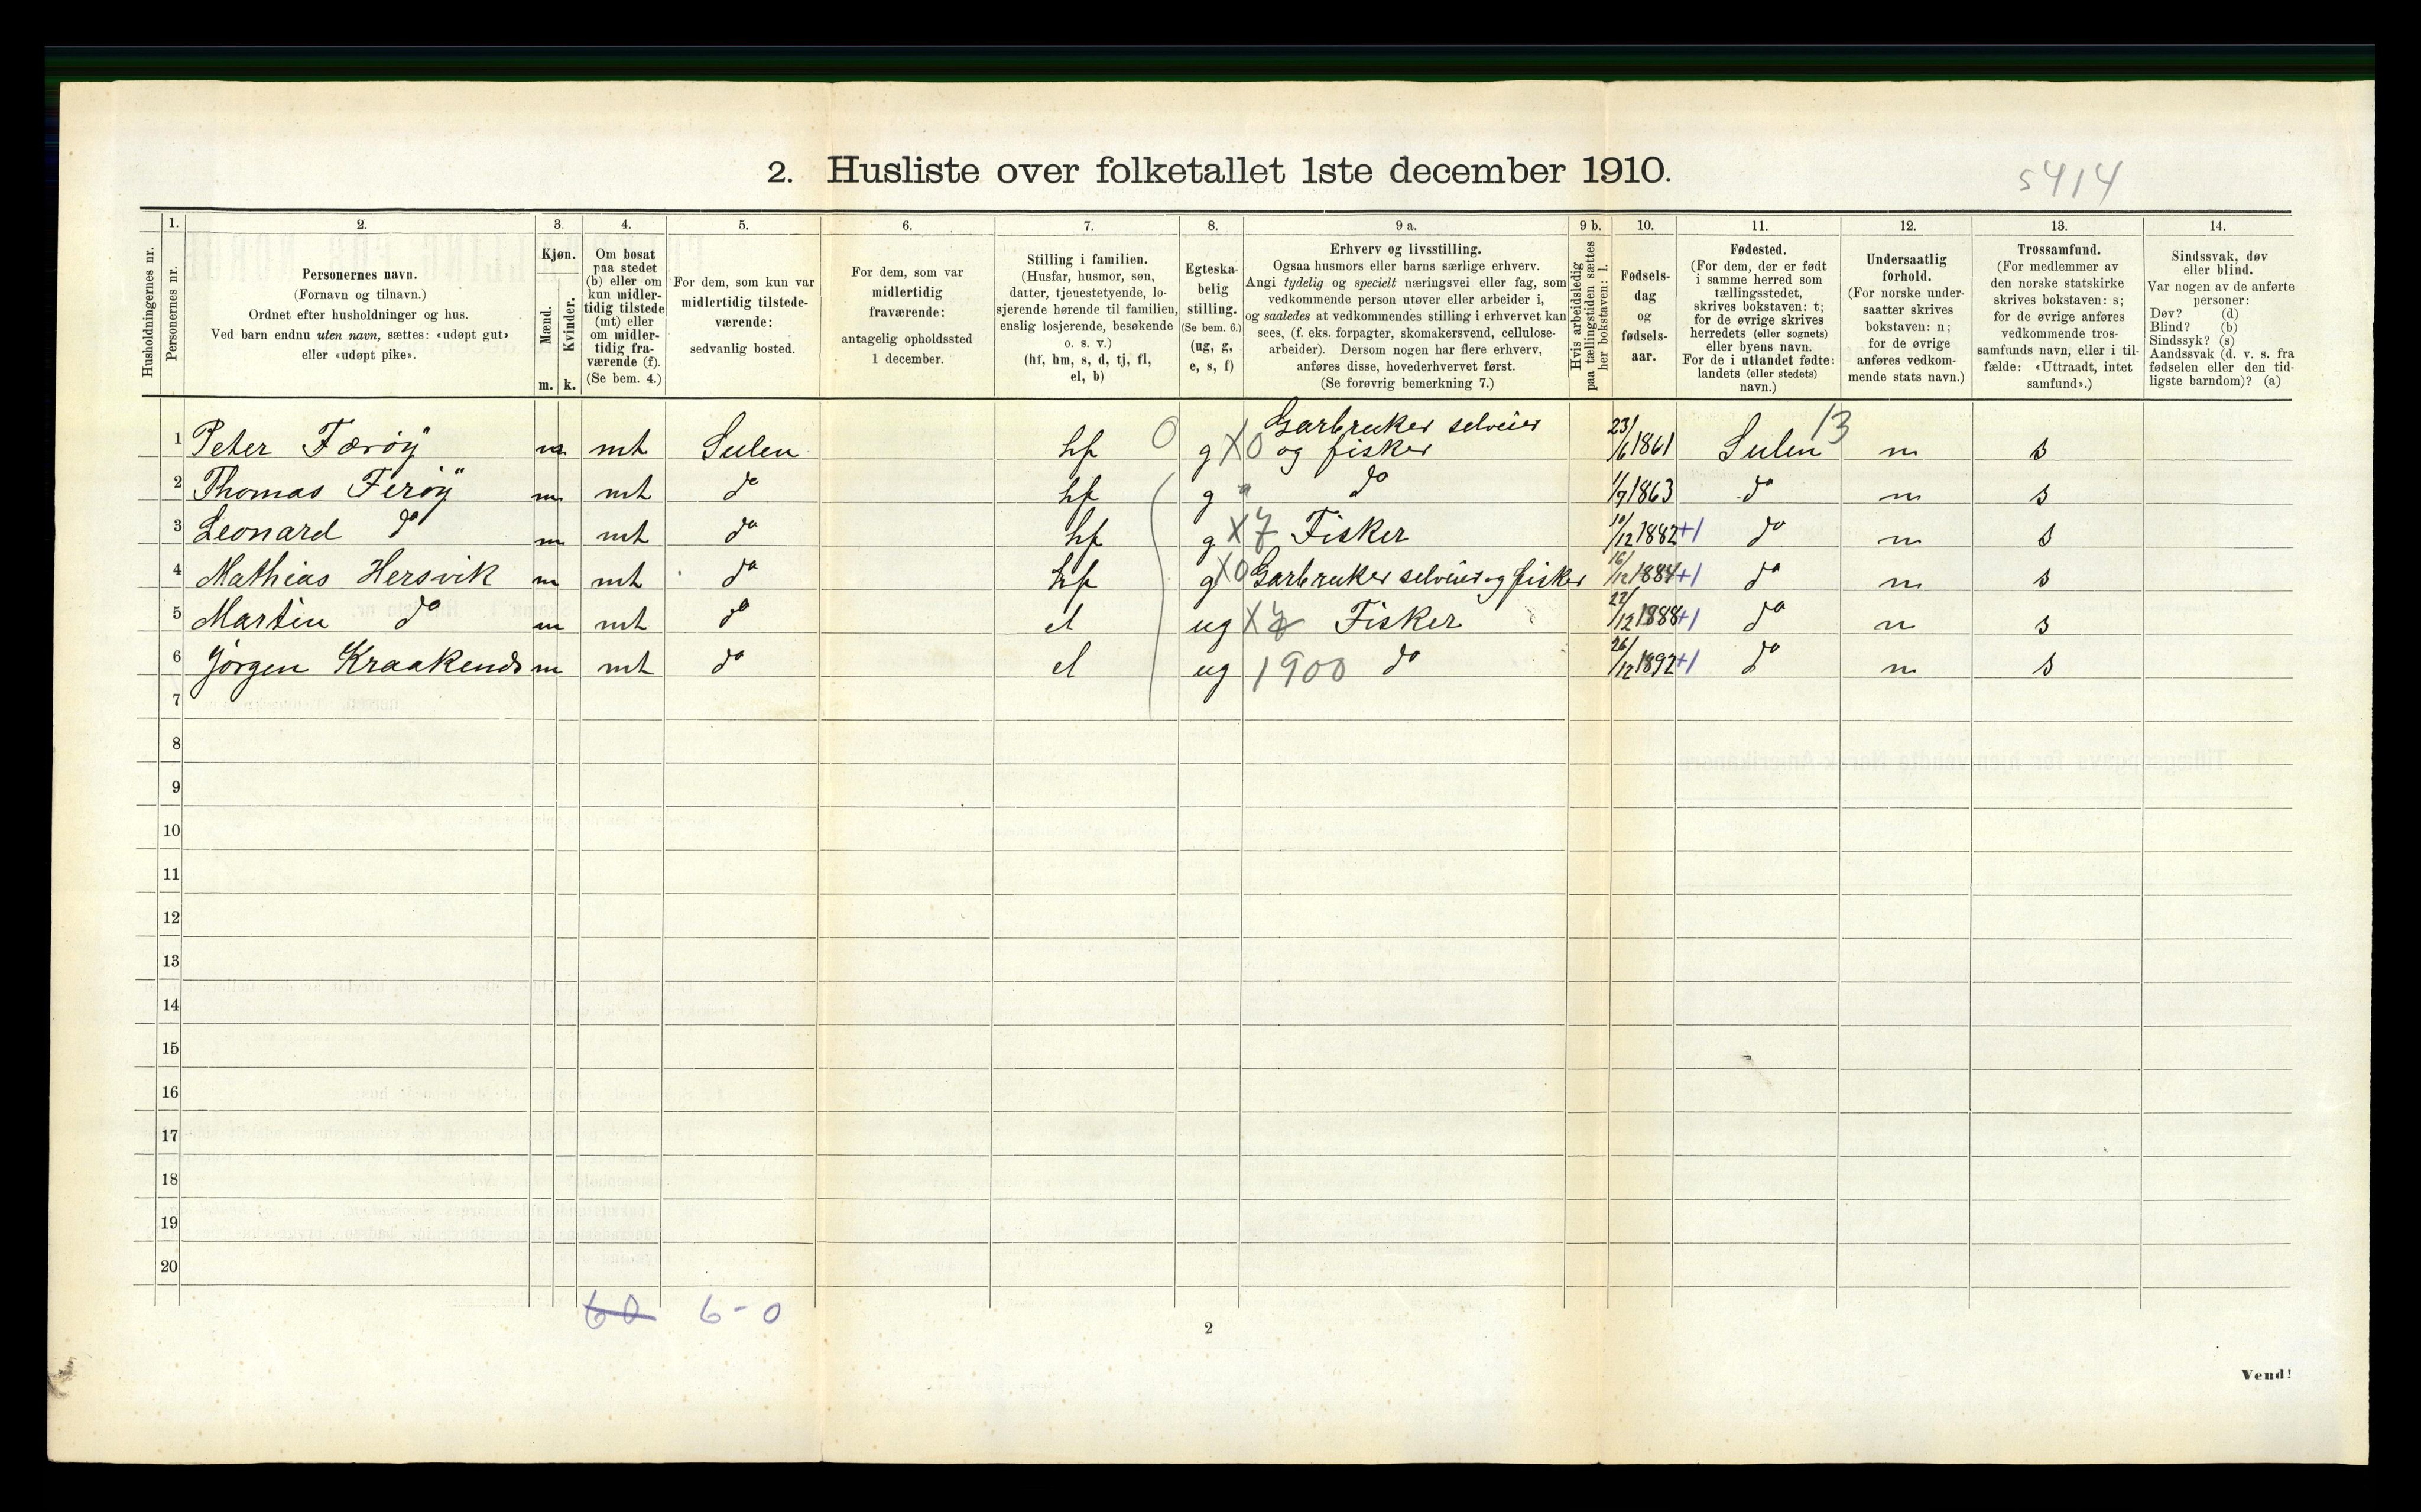 2. Husliste over folketallet 1ste december 1910.
5414
1. 2. 3. 4. 5. 6. 7. 8. 9 a. 9 b. 10. 11. 12. 13. 14.
Husholdningernes nr.
Personernes nr.
Personernes navn.
(Fornavn og tilnavn.)
Ordnet efter husholdninger og hus.
Ved barn endnu uten navn, sættes: «udøpt gut»
eller «udøpt pike».
Kjøn.
Mænd.
Kvinder.
m. k.
Om bosat
paa stedet
(b) eller om
kun midler-
tidig tilstede
(mt) eller
om midler-
tidig fra-
værende (f).
(Se bem. 4.)
For dem, som kun var
midlertidig tilstede-
værende:
sedvanlig bosted.
For dem, som var
midlertidig
fraværende:
antagelig opholdssted
1 december.
Stilling i familien.
(Husfar, husmor, søn,
datter, tjenestetyende, lo-
sjerende hørende til familien,
enslig losjerende, besøkende
o. s. v.)
(hf, hm, s, d, tj, fl,
el, b)
Egteska-
belig
stilling.
(Se bem. 6.)
(ug, g,
e, s, f)
Erhverv og livsstilling.
Ogsaa husmors eller barns særlige erhverv.
Angi tydelig og specielt næringsvei eller fag, som
vedkommende person utøver eller arbeider i,
og saaledes at vedkommendes stilling i erhvervet kan
sees, (f. eks. forpagter, skomakersvend, cellulose-
arbeider). Dersom nogen har flere erhverv,
anføres disse, hovederhvervet først.
(Se forøvrig bemerkning 7.)
Hvis arbeidsledig
paa tællingstiden sættes
her bokstaven: l.
Fødsels-
dag
og
fødsels-
aar.
Fødested.
(For dem, der er født
i samme herred som
tællingsstedet,
skrives bokstaven: t;
for de øvrige skrives
herredets (eller sognets)
eller byens navn.
For de i utlandet fødte:
landets (eller stedets)
navn.)
Undersaatlig
forhold.
(For norske under-
saatter skrives
bokstaven: n;
for de øvrige
anføres vedkom-
mende stats navn.)
Trossamfund.
(For medlemmer av
den norske statskirke
skrives bokstaven: s;
for de øvrige anføres
vedkommende tros-
samfunds navn, eller i til-
fælde: «Uttraadt, intet
samfund».)
Sindssvak, døv
eller blind.
Var nogen av de anførte
personer:
Døv? (d)
Blind? (b)
Sindssyk? (s)
Aandssvak (d. v. s. fra
fødselen eller den tid-
ligste barndom)? (a)
1 Peter Færöy m mt Sulen hf 0 g X0 Garbruker selveier og fisker 23/6 1861 Sulen 13 n s
2 Thomas Feröy m mt do hf g " do 1/7 1863 do n s
3 Leonard do m mt do hf g X7 Fisker 10/12 1882 +1 do n s
4 Mathias Hersvik m mt do hf g X0 Garbruker selveier og fisker 16/12 1884 +1 do n s
5 Martin do m mt do el ug X7 Fisker 22/12 1888 +1 do n s
6 Jörgen Kraakends m mt do el ug 1900 do 26/12 1892 +1 do n s
7
8
9
10
11
12
13
14
15
16
17
18
19
20
6-0 6-0
2
Vend!